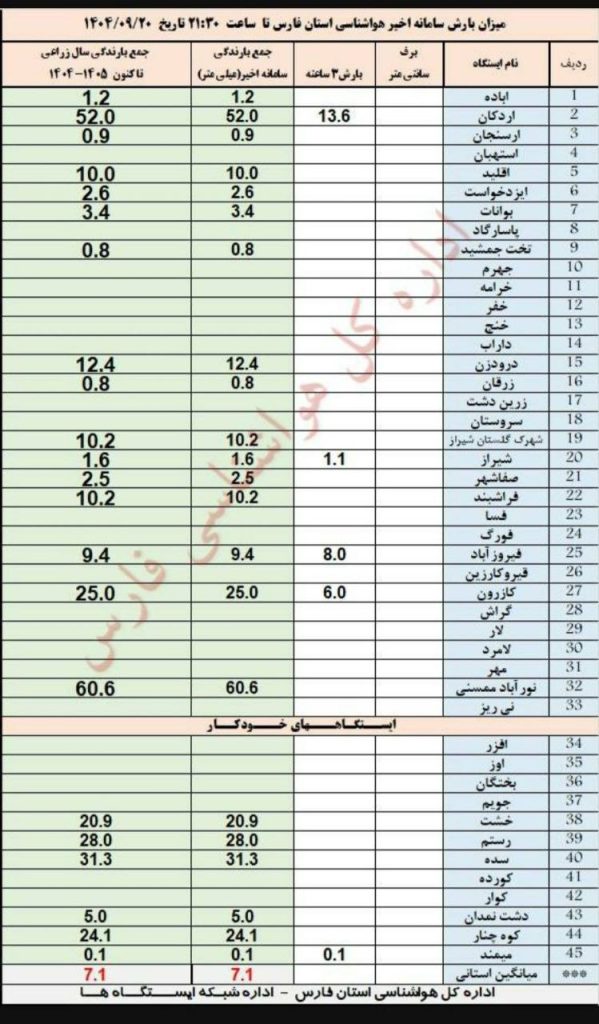 میزان بارش سامانه اخیر هواشناسی استان فارس تا ساعت ۲۱:۳۰ تاریخ ۱۴۰۴/۰۹/۲۰
ردیف نام ایستگاه برف سانتی متر بارش ۳ ساعته جمع بارندگی سامانه اخیر(میلی متر) جمع بارندگی سال زراعی تاکنون ۱۴۰۵-۱۴۰۴
1 اباده 1.2 1.2
2 اردکان 13.6 52.0 52.0
3 ارسنجان 0.9 0.9
4 استهبان
5 اقلید 10.0 10.0
6 ایزدخواست 2.6 2.6
7 بوانات 3.4 3.4
8 پاسارگاد
9 تخت جمشید 0.8 0.8
10 جهرم
11 خرامه
12 خفر
13 خنج
14 داراب
15 درودزن 12.4 12.4
16 زرقان 0.8 0.8
17 زرین دشت
18 سروستان
19 شهرک گلستان شیراز 10.2 10.2
20 شیراز 1.1 1.6 1.6
21 صفاشهر 2.5 2.5
22 فراشبند 10.2 10.2
23 فسا
24 فورگ
25 فیروز آباد 8.0 9.4 9.4
26 قیروکارزین
27 کازرون 6.0 25.0 25.0
28 گراش
29 لار
30 لامرد
31 مهر
32 نور آباد ممسنی 60.6 60.6
33 نی ریز
ایستگاههای خودکار
34 افزر
35 اوز
36 بختگان
37 جویم
38 خشت 20.9 20.9
39 رستم 28.0 28.0
40 سده 31.3 31.3
41 کورده
42 کوار
43 دشت نمدان 5.0 5.0
44 کوه چنار 24.1 24.1
45 میمند 0.1 0.1 0.1
*** میانگین استانی 7.1 7.1
اداره کل هواشناسی استان فارس - اداره شبکه ایستگاه ها
اداره کل هواشناسی فارس